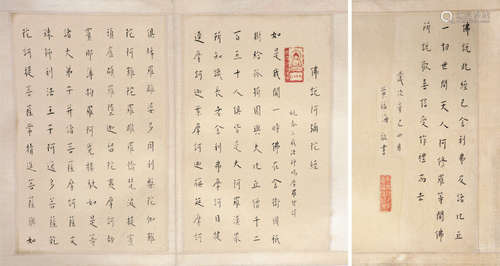 佛說阿彌陀經
姚秦三藏法師鳩摩羅什譯
如是我聞一時佛在舍衛國祇
樹給孤獨園與大比丘僧千二
百五十人俱皆是大阿羅漢眾
所知識長老舍利弗摩訶目犍
連摩訶迦葉摩訶迦旃延摩訶
俱絺羅離婆多周利槃陀伽難
陀阿難陀羅睺羅憍梵波提賓
頭盧頗羅墮迦留陀夷摩訶劫
賓那薄拘羅阿㝹樓馱如是等
諸大弟子并諸菩薩摩訶薩文
殊師利法王子阿逸多菩薩乾
陀訶提菩薩常精進菩薩與如
佛說此經已舍利弗及諸比丘
一切世間天人阿修羅等聞佛
所說歡喜信受作禮而去
歲次辛巳四月
黃福海敬書